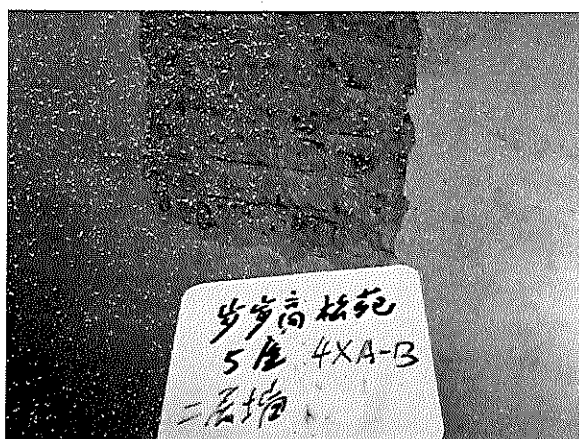 步步高松苑
5座 4XA-B
二层墙